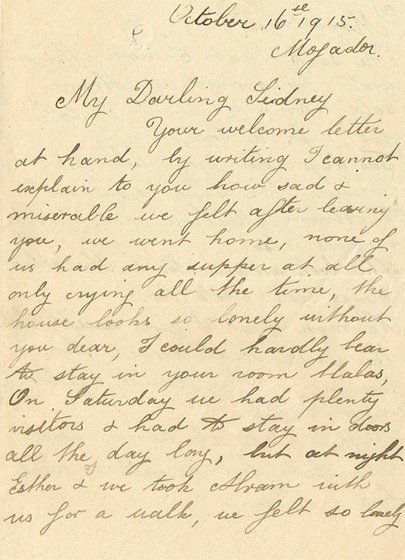 October 16 se 1915.
Mogador.
My Darling Sidney
Your welcome letter
at hand, by writing I cannot
explain to you how sad &
miserable we felt after leaving
you, we went home, none of
us had any supper at all
only crying all the time, the
house looks so lonely without
you dear, I could hardly bear
to stay in your room Halas,
On Saturday we had plenty
visitors & had to stay in doors
all the day long, but at night
Esther & we took Abram with
us for a walk, we felt so lonely